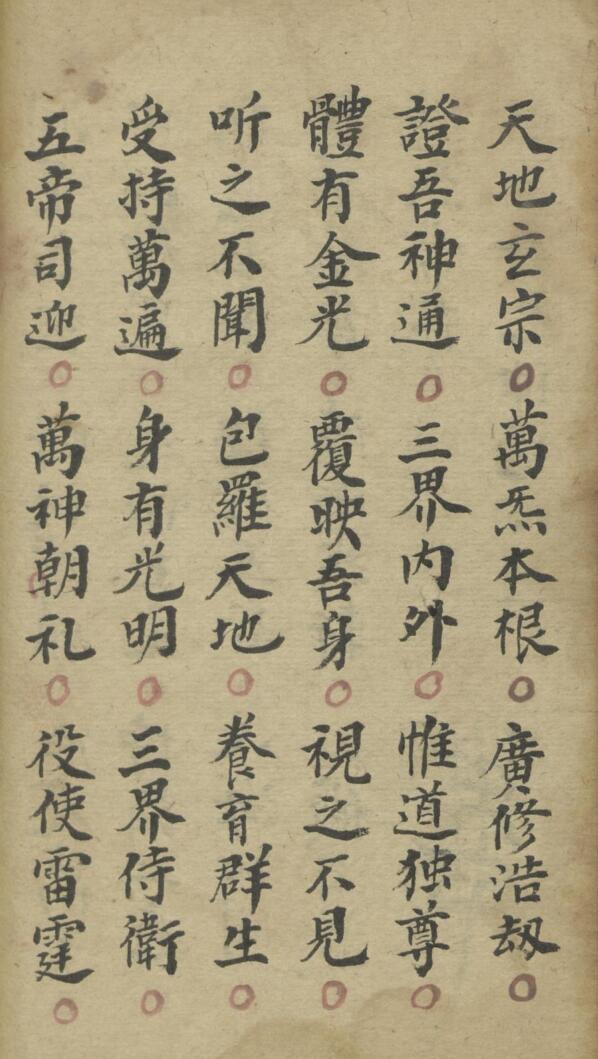 天地玄宗○萬炁本根○廣修浩劫○
證吾神通○三界内外○惟道独尊○
體有金光○覆映吾身○視之不見○
听之不聞○包羅天地○養育群生○
受持萬遍○身有光明○三界侍衛○
五帝司迎○萬神朝礼○役使雷霆○